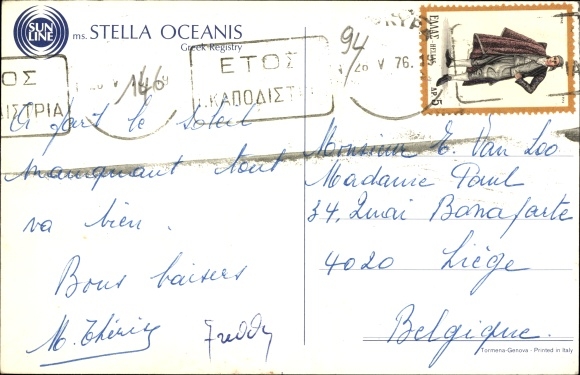 SUN
LINE
ms. STELLA OCEANIS
Greek Registry
ΕΤΟΣ
Ι. ΚΑΠΟΔΙΣΤΡΙΑ
146
94
20 V 76
ΕΛΛΑΣ HELLAS
ΔΡ 5
A part le soleil
manquant tout
va bien.
Bons baisers
M. Thérèse Freddy
Monsieur E. Van Loo
Madame Paul
34, Quai Bonaparte
4020 Liège
Belgique.
Tormena-Genova - Printed in Italy